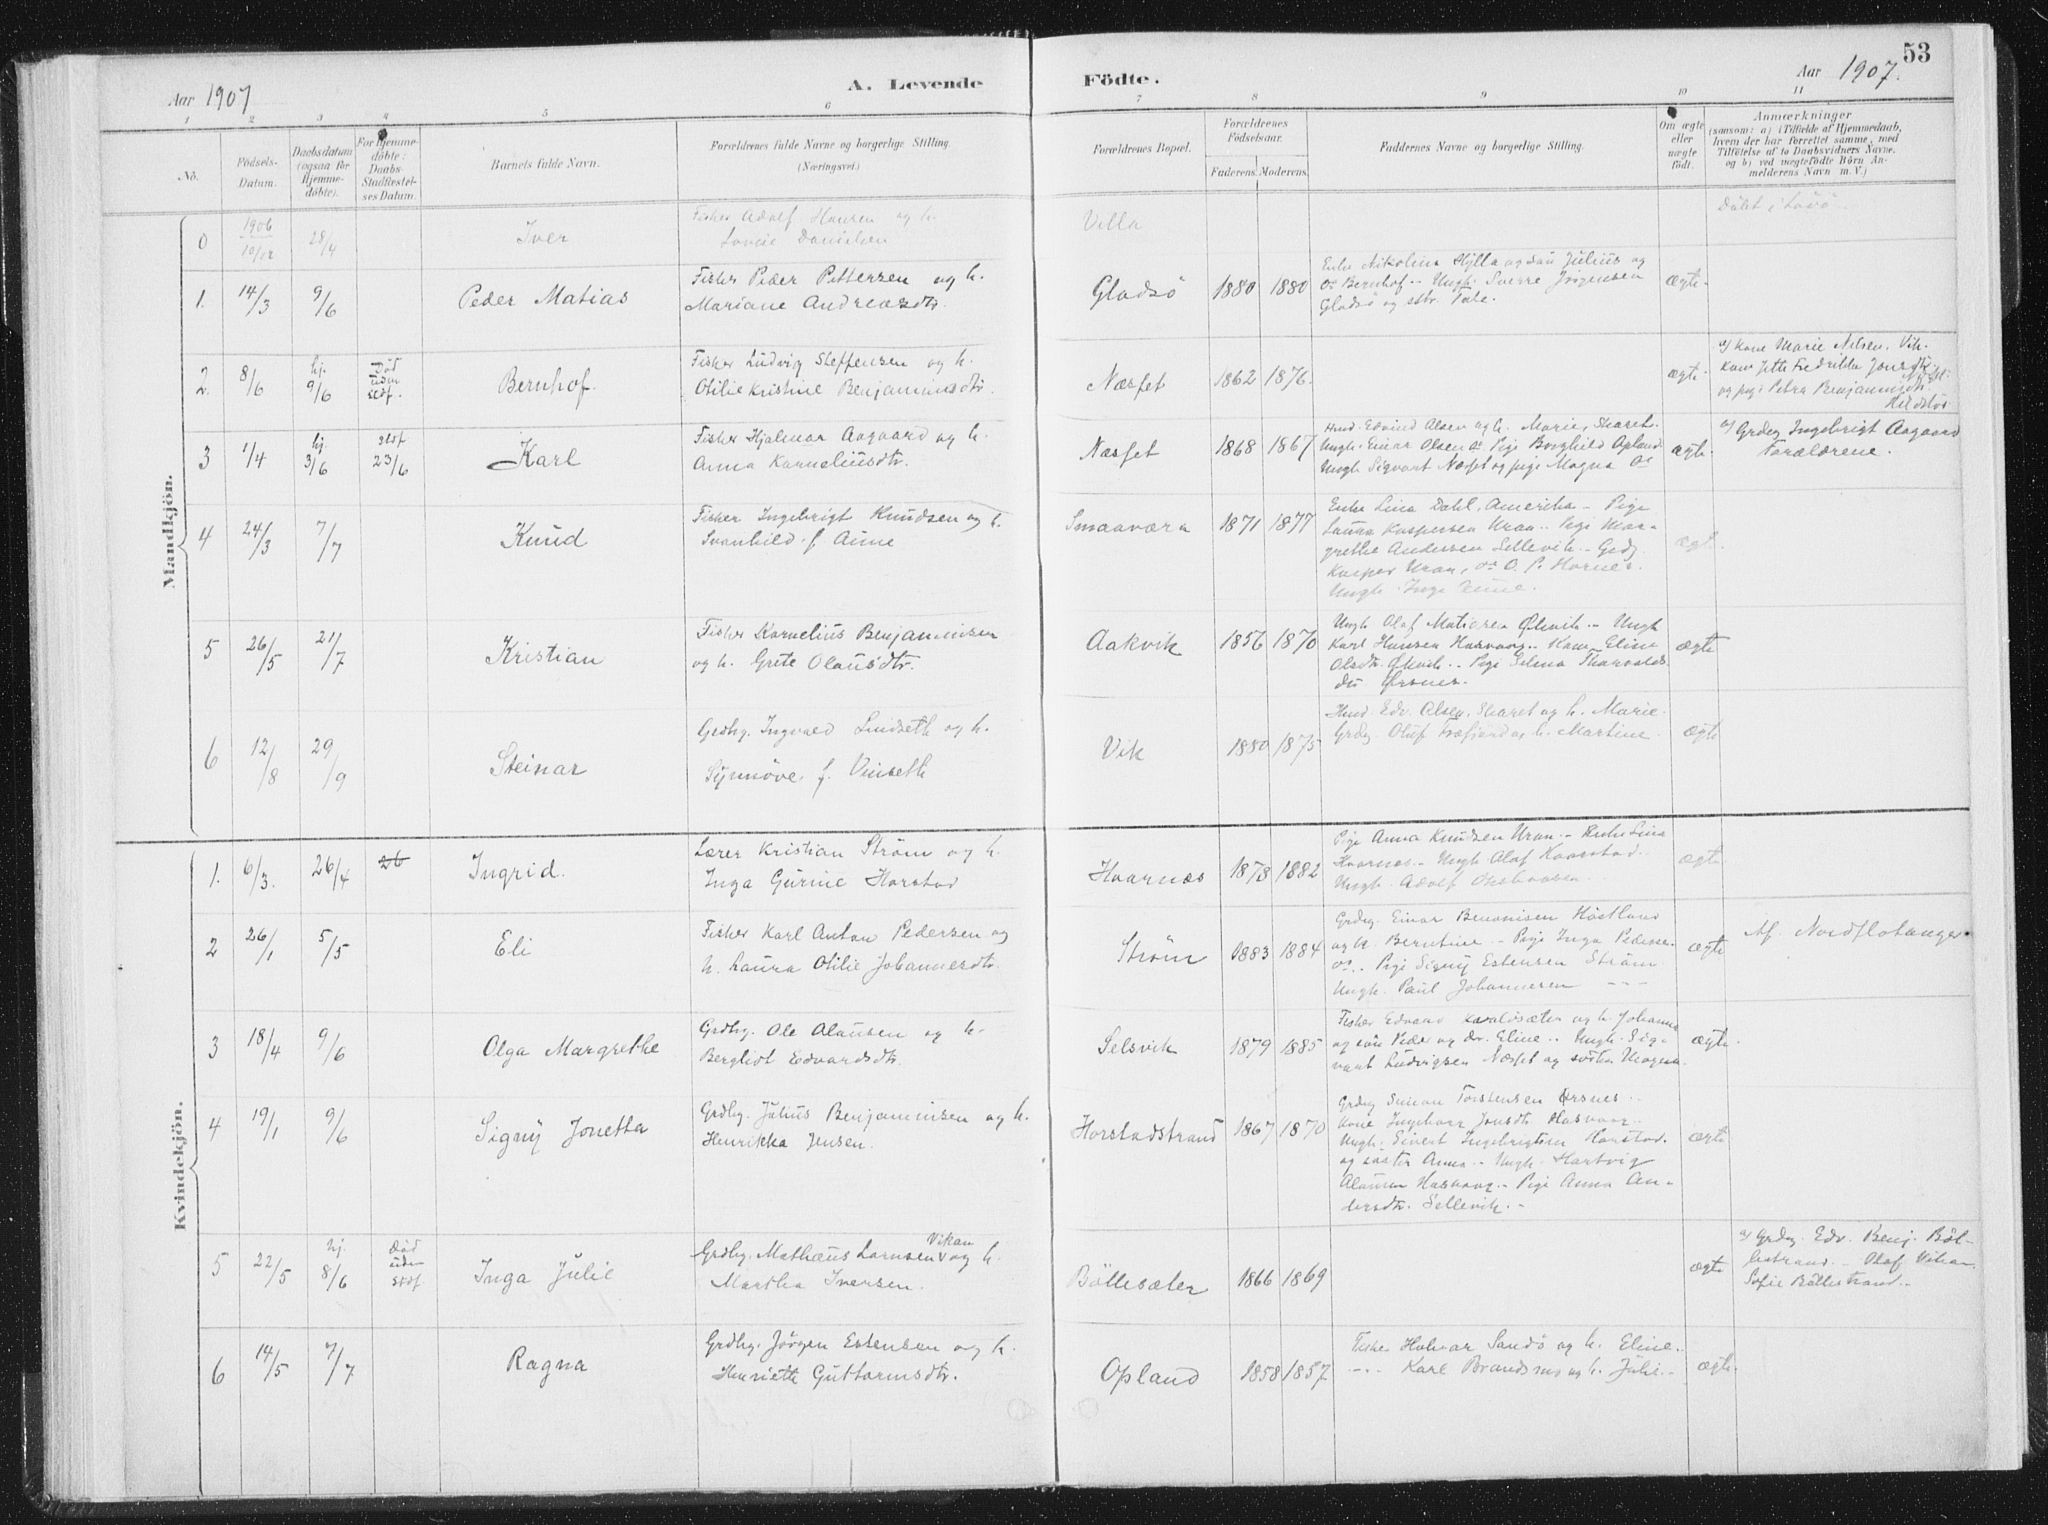 53
Aar 1907
A. Levende
Födte.
Aar 1907.
1 2 3 4 5 6 7 8 9 10 11
No.
Födsels-
Datum.
Daabsdatum
(ogsaa for
Hjemme-
döbte).
For hjemme-
döbte:
Daabs-
Stadfæstel-
ses Datum.
Barnets fulde Navn.
Forældrenes fulde Navne og borgerlige Stilling
(Næringsvei.)
Forældrenes Bopæl.
Forældrenes
Födselsaar.
Faderens. Moderens.
Faddernes Navne og borgerlige Stilling.
Om ægte
eller
uægte
födt.
Anmærkninger
(saasom: a) i Tilfælde af Hjemmedaab,
hvem der har forrettet samme, med
Tilföielse af to Daabsvidners Navne.
og b) ved uægtefödte Börn An-
melderens Navn m. V.)
Mandkjön.
0 1906 10/12 28/4 Iver
Fisker Adolf Hansen og h.
Lovise Danielsen
Villa
Döbt i
1. 14/3 9/6 Peder Matias
Fisker Peder Pettersen og h.
Mariane Andreasdtr.
Gladsö 1880 1880
Enke Nikolina Hylla og sön Julius og
Bernhof - Ungk. Sverre Jörgensen
Gladsö og sstr. Tale.
ægte.
2. 8/6 hj. 9/6 Död uden stdf. Bernhof.
Fisker Ludvig Steffensen og h.
Otilie Kristine Benjaminsdtr.
Næsset 1862 1876.
ægte.
a/ Kone Marie Nilsen, Vik.
Kone Jette Fredrikke Jonsdtr.
og pige Petra Benjaminsdtr.
3 1/4 hj 3/6 stdf 23/6 Karl
Fisker Hjalmar Aagaard og h.
Anna Korneliusdtr.
Næsset 1868 1867
Hmd. Edvind Olsen og h. Marie, Skaret.
Ungk. Einar Olsen Pige Borghild Opland
Ungk Sigvart Næsset og pige Magna
ægte.
a/ Grdeg Ingebrigt Aagaard
Forældrene.
4 24/3 7/7 Knud
Fisker Ingebrigt Knudsen og h.
Svanhild f. Aune
Smaaværa 1871 1877
Enke Lina Dahl, Amerika - Pige
Laura Kaspersen Uran.. Pige Mar-
grethe Andersen Sellevik.. Grdg
Kasper Uran, O. P. Hornes.
Ungk. Inge Aune.
ægte.
5 26/5 21/7 Kristian
Fisker Kornelius Benjaminsen
og h. Grete Olausdtr.
Aakvik 1856 1870
Ungk Olaf Matiasen Ölvik.. Ungk
Karl Hansen Hasvaag.. Kone Eline
Olsdtr. Ökvik.. Pige Selma Thorvalds
dtr Örsnes.
ægte
6 12/8 29/9 Steinar
Grdbg. Ingvald Lindseth og h.
Synnöve, f. Vinseth
Vik 1880 1875
Hmd. Edv. Olsen, Skaret og h. Marie.
Grdbg. Oluf og h. Martine.
ægte
Kvindekjön.
1. 6/3. 26/4 26 Ingrid.
Lærer Kristian Ström og h.
Inga Gurine Horstad
Hvarnæs 1878 1882
Pige Anna Knudsen Uran.. Enke Lina
Hvarnes.. Ungk. Olaf Haarstad..
Ungk. Adolf
ægte
2 26/1 5/5 Eli
Fisker Karl Anton Pedersen og
h. Laura Otilie Johannesdtr.
Ström 1883 1884
Grdbg. Einar Benonisen Höstland
og h. Berntine.. Pige Inga Pedersen
.. Pige Signy Estensen Ström
Ungk. Paul Johannesen - - -
ægte
Af. Nordflatanger.
3 18/4 9/6 Olga Margrethe
Grdbg. Ole Olausen og h.
Bergliot Edvardsdtr.
Selsvik 1879 1885
Fisker Edvard og h. Johanna
og sön Peder og dtr. Eline.. Ungk. Sig-
vart Ludvigsen Næsset og söster Magna.
ægte
4 19/1 9/6 Signy Jonetta
Grdbg. Julius Benjaminsen og h.
Henrikka Jensen.
Horstadstrand 1867 1870
Grdbg Simon Torstensen Örsnes..
Kone Ingeborg Jonsdtr Hasvaag..
Ungk. Sivert Ingebrigtsen Horstad.
og söster Anna.. Ungk. Hartvig
Olausen Hasvaag.. Pige Anna An-
dersdtr. Sellevik.-
ægte
5 22/5 hj. 8/6 Död uden stdf Inga Julie
Grdbg. Mathæus Larnsen Vikan og h.
Martha Iversen.
Böllesæter 1866 1869
ægte
a/ Grdbg. Edv. Benj. Böl-
lestrand.. Olaf Vikan
Sofie Böllestrand..
6 14/5 7/7 Ragna
Grdbg. Jörgen Estensen og h.
Henriette Guttormsdtr.
Opland 1858 1857
Fisker Halvar Sandö og h. Eline.
-..- Karl Brandsmo og h. Julie..
ægte.